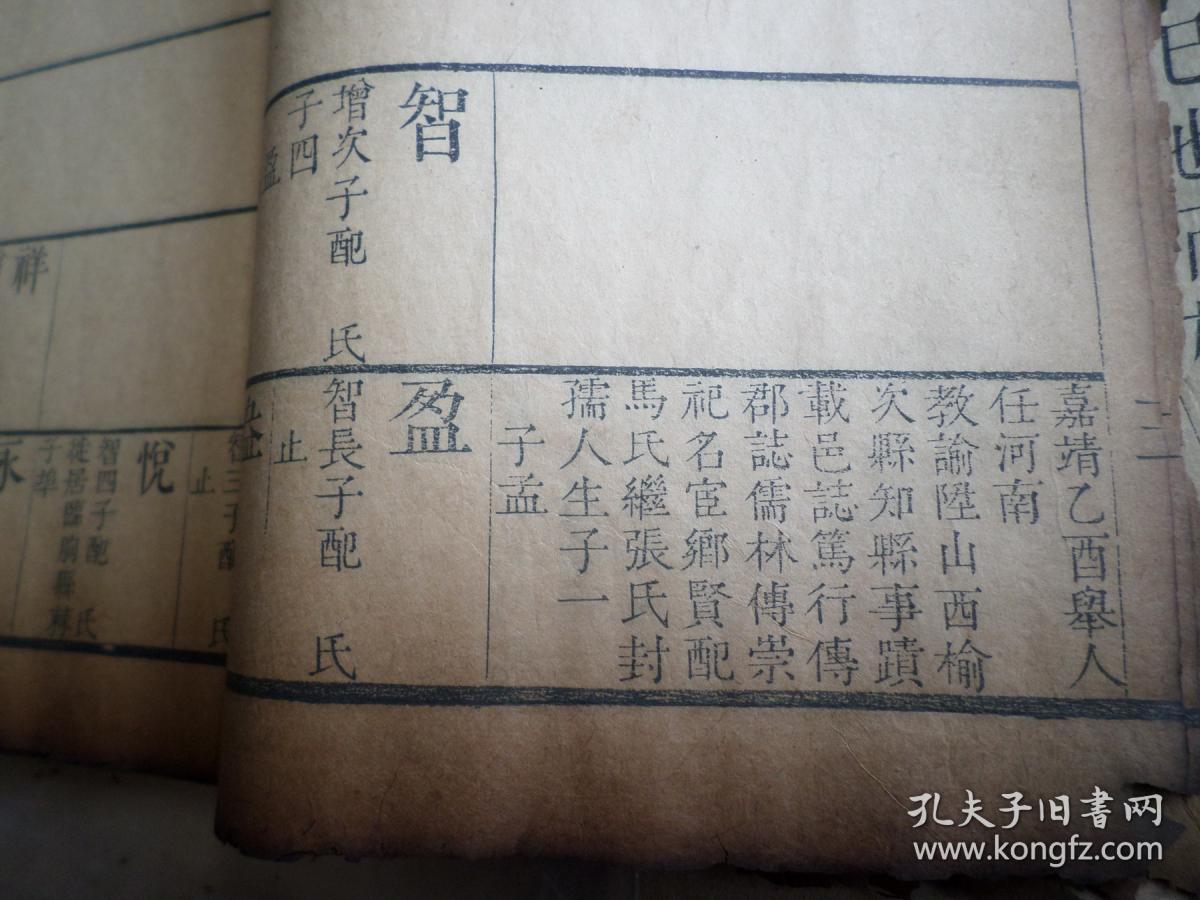 嘉靖乙酉舉人
任河南
教諭陞山西榆
次縣知縣事蹟
載邑誌篤行傳
郡誌儒林傳崇
祀名宦鄉賢配
馬氏繼張氏封
孺人生子一
子孟
智
增次子配 氏
子四
盈
盈
智長子配 氏
止
三
止
悅
智四子配 氏
子華
祥
孔夫子旧书网
www.kongfz.com